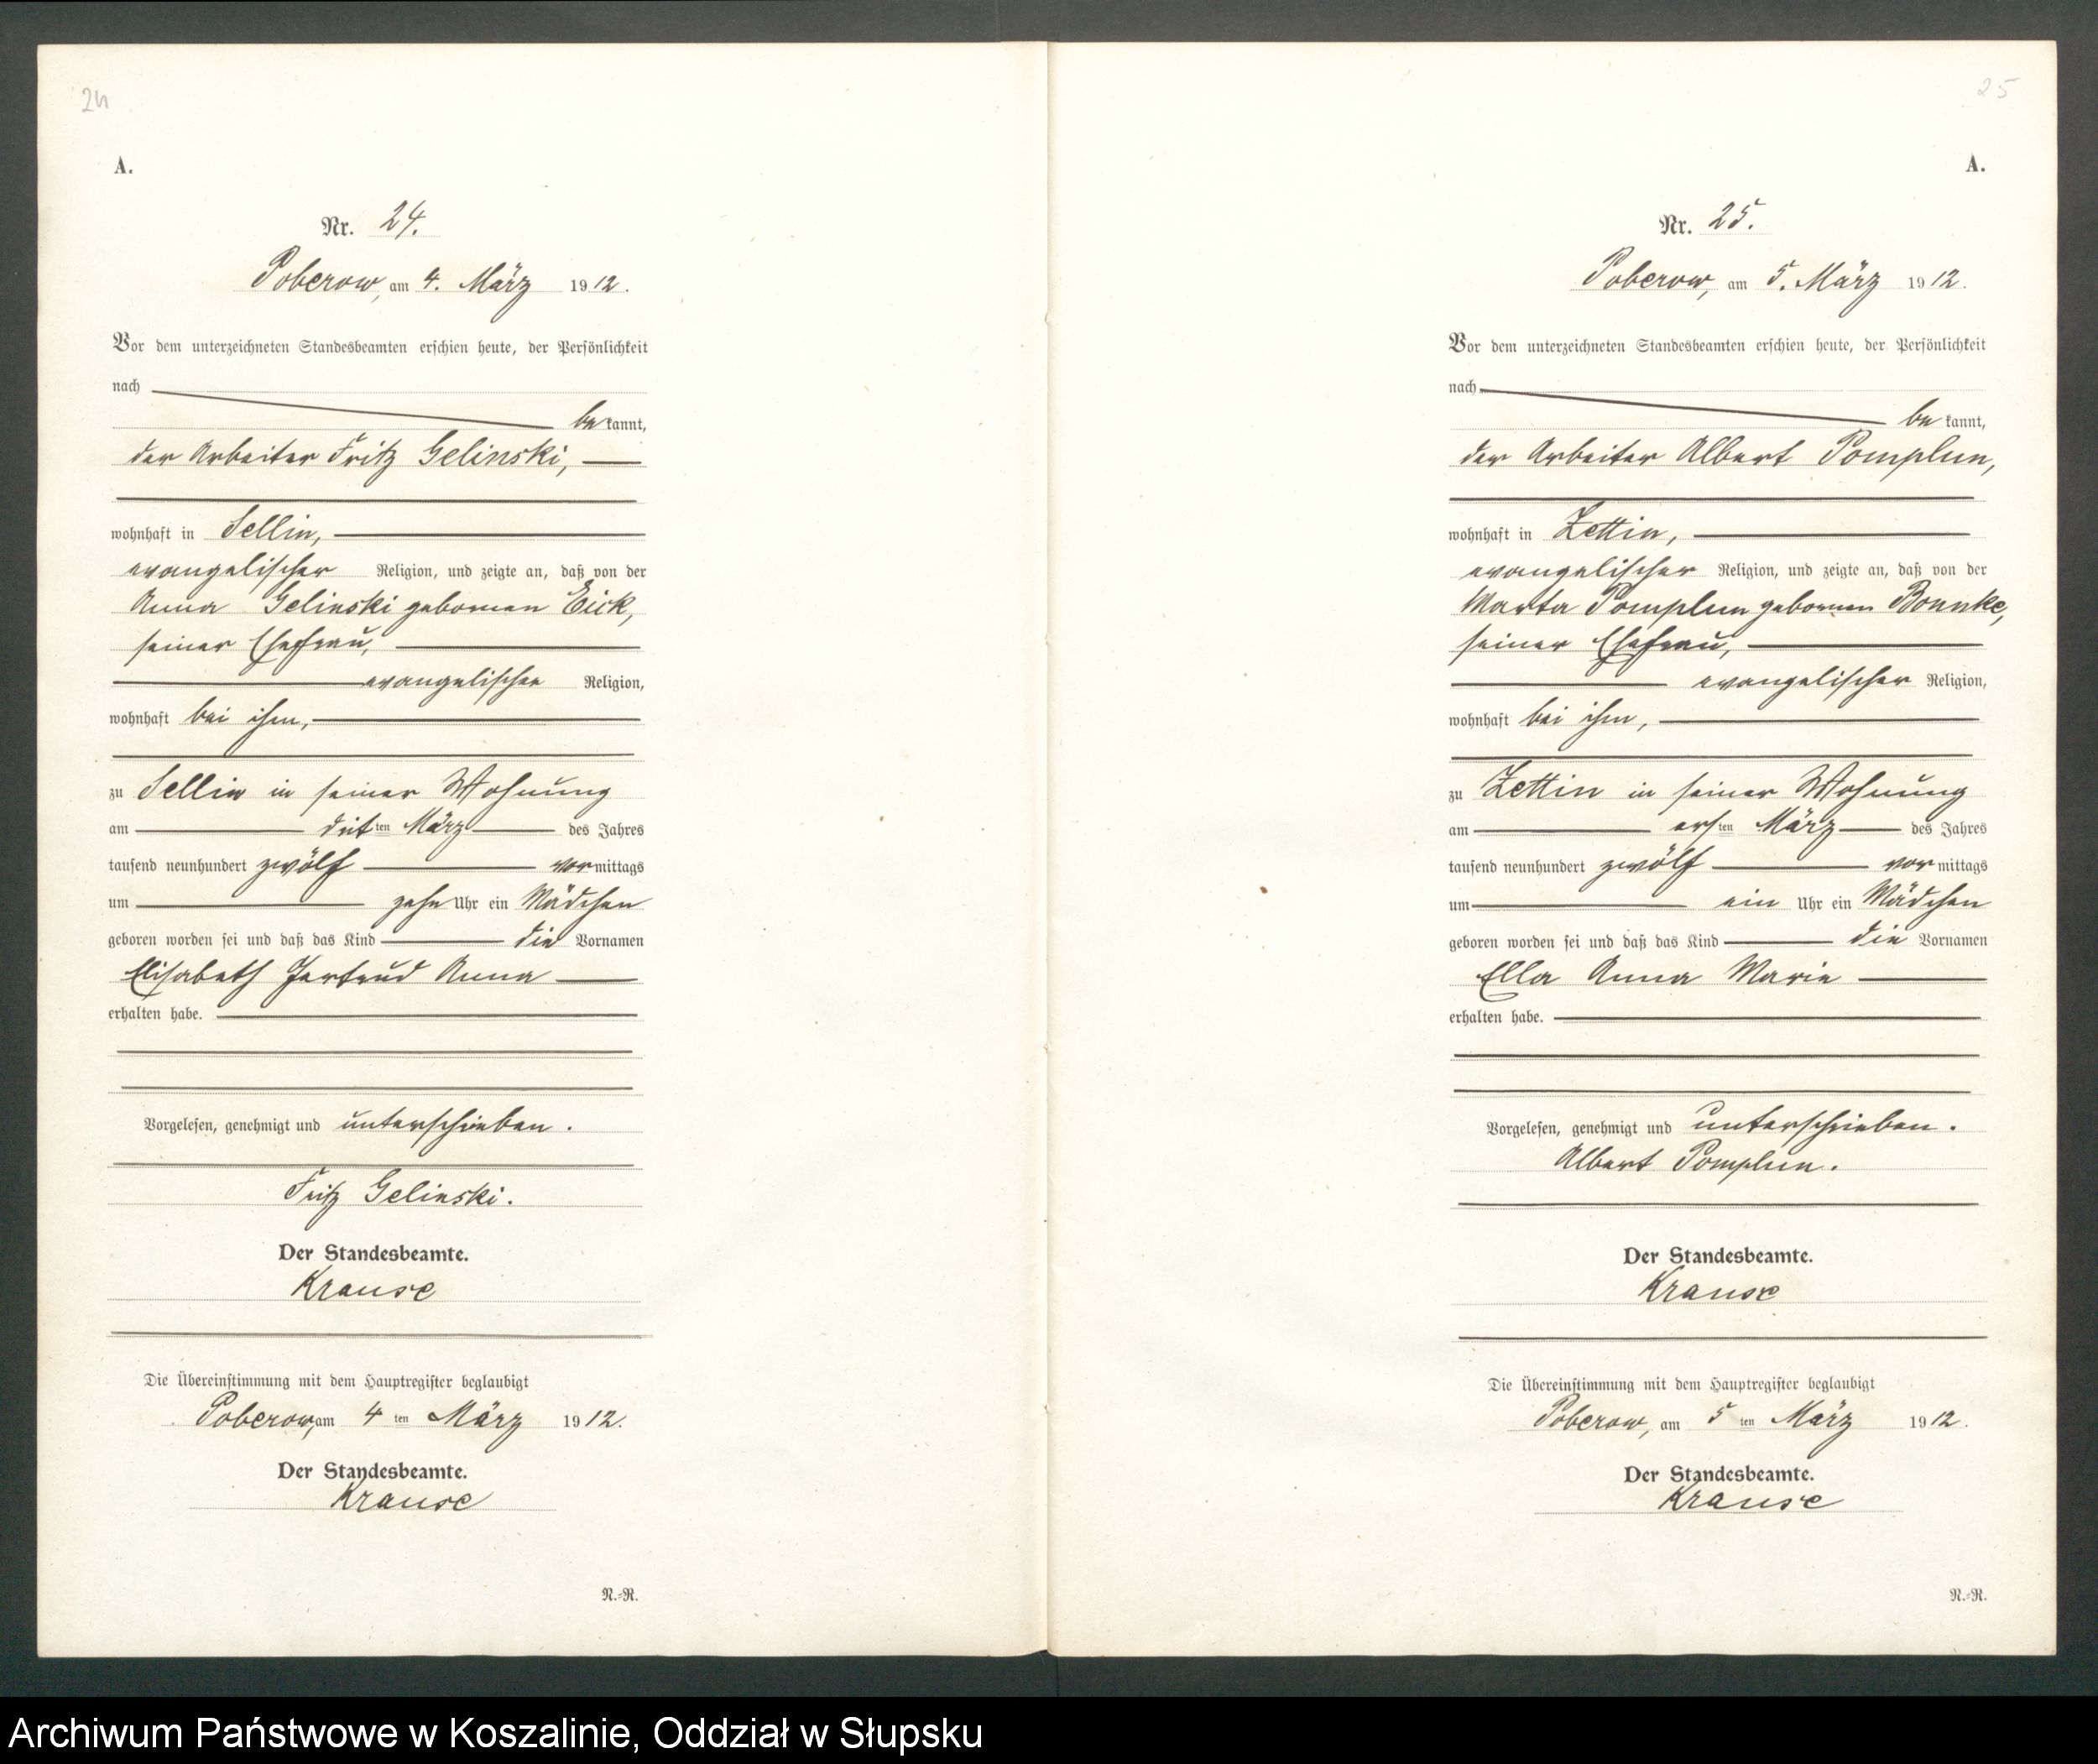 24
A.
Nr. 24.
Poberow, am 4. März 1912.
Vor dem unterzeichneten Standesbeamten erschien heute, der Persönlichkeit
nach
bekannt,
der Arbeiter Fritz Gelinski,
wohnhaft in Sellin,
evangelischer Religion, und zeigte an, daß von der
Anna Gelinski gebornen Eick,
seiner Ehefrau,
evangelischer Religion,
wohnhaft bei ihm,
zu Sellin in seiner Wohnung
am dritten März des Jahres
tausend neunhundert zwölf vormittags
um zehn Uhr ein Mädchen
geboren worden sei und daß das Kind die Vornamen
Elisabeth Gertrud Anna
erhalten habe.
Vorgelesen, genehmigt und unterschrieben.
Fritz Gelinski.
Der Standesbeamte.
Krause
Die Übereinstimmung mit dem Hauptregister beglaubigt
Poberow, am 4ten März 1912.
Der Standesbeamte.
Krause
N.-R.
25
A.
Nr. 25.
Poberow, am 5. März 1912.
Vor dem unterzeichneten Standesbeamten erschien heute, der Persönlichkeit
nach
bekannt,
der Arbeiter Albert Pomplun,
wohnhaft in Zettin,
evangelischer Religion, und zeigte an, daß von der
Marta Pomplun gebornen Bonnke,
seiner Ehefrau,
evangelischer Religion,
wohnhaft bei ihm,
zu Zettin in seiner Wohnung
am ersten März des Jahres
tausend neunhundert zwölf vormittags
um ein Uhr ein Mädchen
geboren worden sei und daß das Kind die Vornamen
Ella Anna Marie
erhalten habe.
Vorgelesen, genehmigt und unterschrieben.
Albert Pomplun.
Der Standesbeamte.
Krause
Die Übereinstimmung mit dem Hauptregister beglaubigt
Poberow, am 5ten März 1912.
Der Standesbeamte.
Krause
N.-R.
Archiwum Państwowe w Koszalinie, Oddział w Słupsku